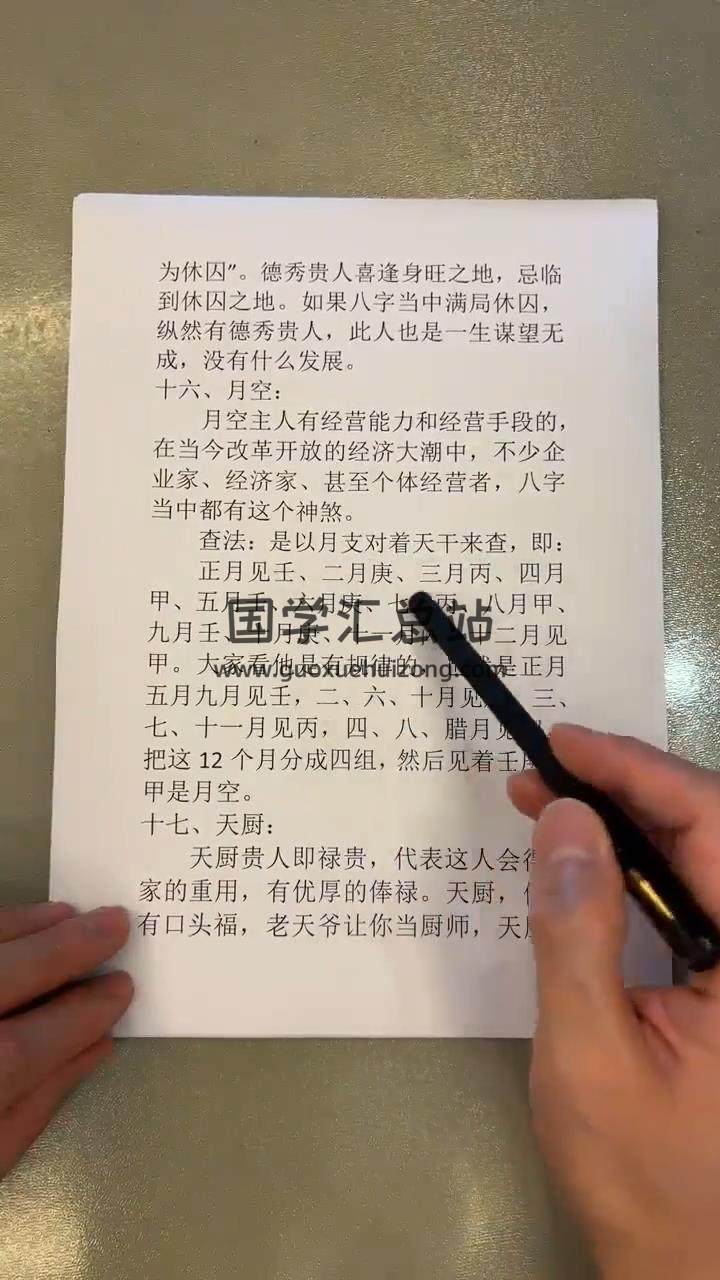 为休囚”。德秀贵人喜逢身旺之地，忌临
到休囚之地。如果八字当中满局休囚，
纵然有德秀贵人，此人也是一生谋望无
成，没有什么发展。
十六、月空：
月空主人有经营能力和经营手段的，
在当今改革开放的经济大潮中，不少企
业家、经济家、甚至个体经营者，八字
当中都有这个神煞。
查法：是以月支对着天干来查，即：
正月见壬、二月庚、三月丙、四月
甲、五月壬、六月庚、七 丙、八月甲、
九月壬、十月庚、十一月 二月见
甲。大家看他是有规律的， 是正月
五月九月见壬，二、六、十月见 三、
七、十一月见丙，四、八、腊月见
把这 12 个月分成四组，然后见着壬
甲是月空。
十七、天厨：
天厨贵人即禄贵，代表这人会
家的重用，有优厚的俸禄。天厨，
有口头福，老天爷让你当厨师，天
国学汇总站
www.guoxuehuizong.com